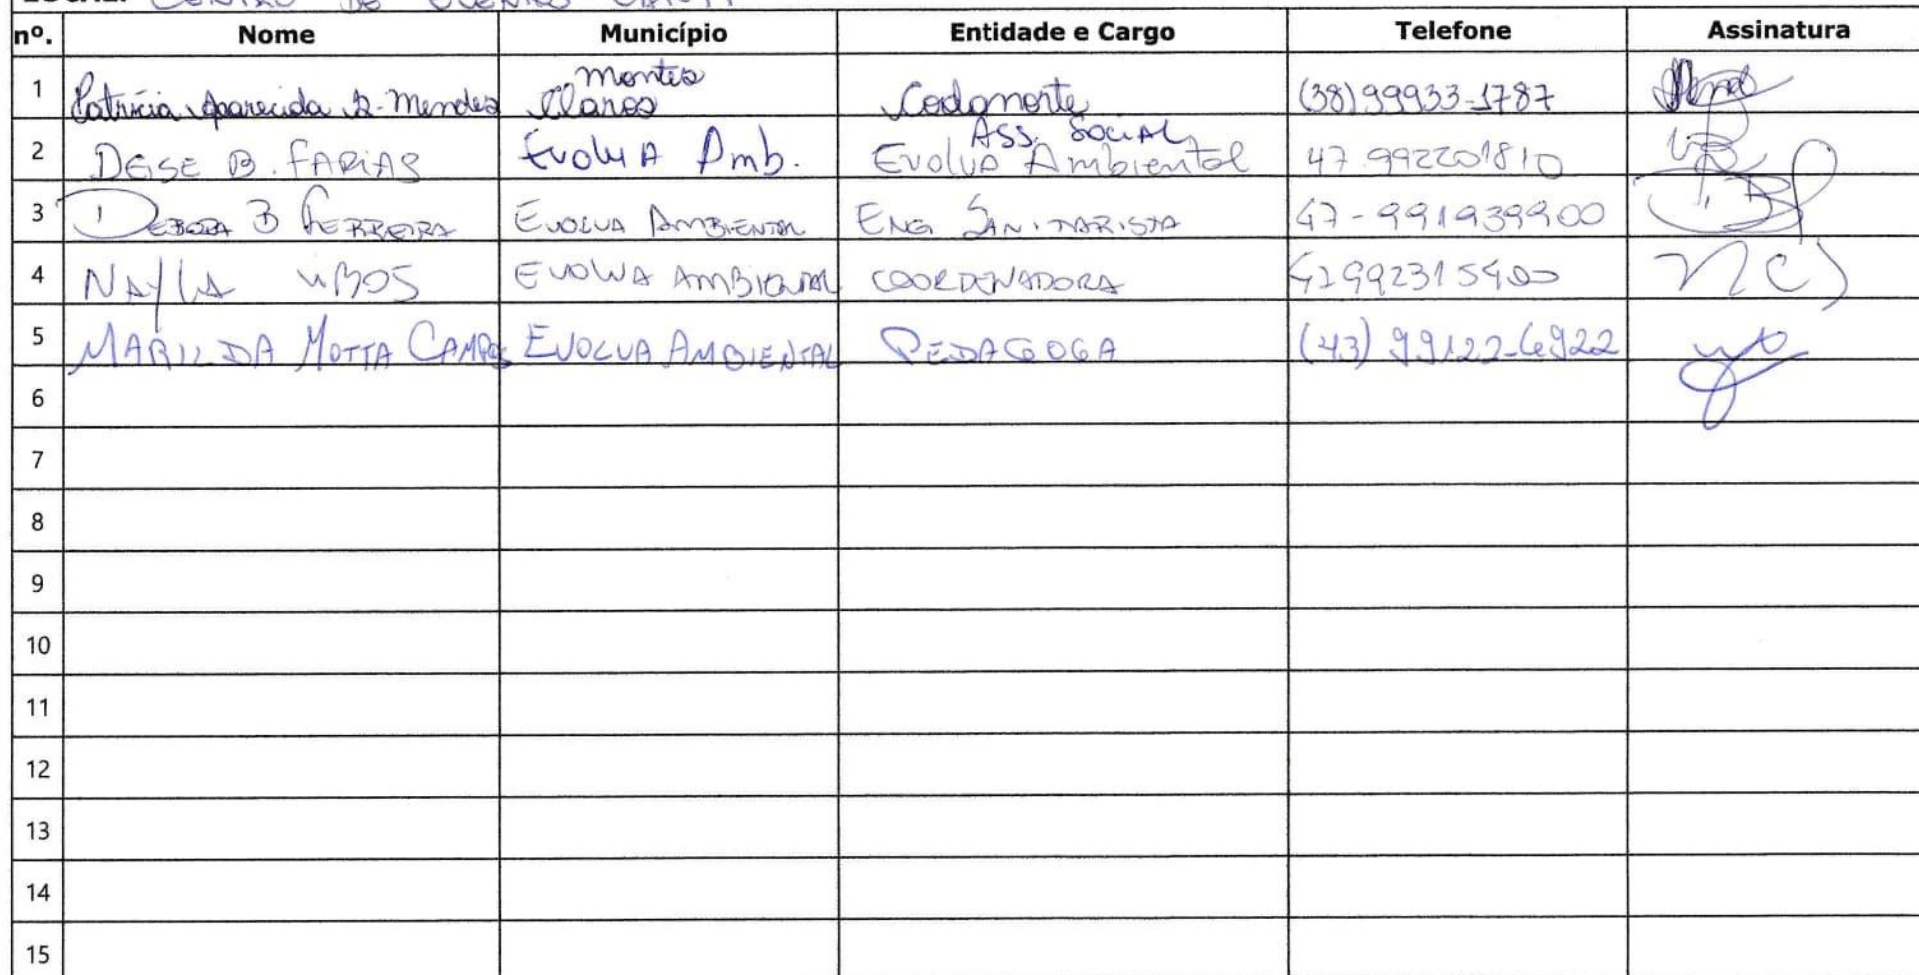 CENTRO DE EVENTOS
nº. Nome Município Entidade e Cargo Telefone Assinatura
1 Patrícia Aparecida R. Mendes Montes Claros Codanorte (38) 99933-1787
2 DEISE B. FARIAS Evolua Amb. Ass. Social Evolua Ambiental 47 992201810
3 DEBORA B FERREIRA EVOLUA AMBIENTAL ENG SANITARISTA 47-991939900
4 NAYLA EVOLUA AMBIENTAL COORDENADORA
5 MARILDA MOTTA CAMPOS EVOLUA AMBIENTAL PEDAGOGA (43) 99122-6922
6
7
8
9
10
11
12
13
14
15